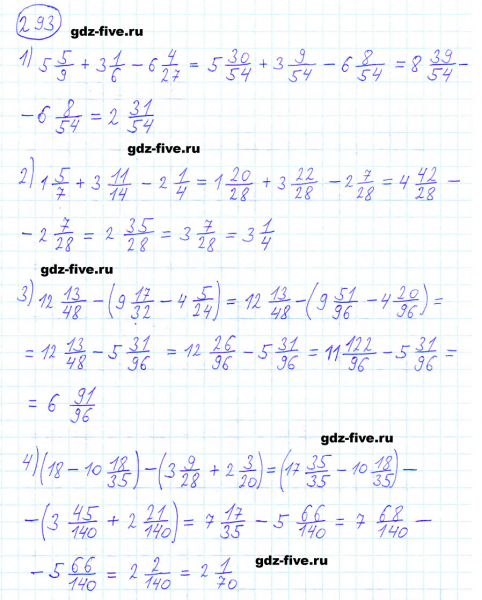 293 gdz-five.ru
1) 5 5/9 + 3 1/6 − 6 4/27 = 5 30/54 + 3 9/54 − 6 8/54 = 8 39/54 −
− 6 8/54 = 2 31/54
gdz-five.ru
2) 1 5/7 + 3 11/14 − 2 1/4 = 1 20/28 + 3 22/28 − 2 7/28 = 4 42/28 −
− 2 7/28 = 2 35/28 = 3 7/28 = 3 1/4
gdz-five.ru
3) 12 13/48 − (9 17/32 − 4 5/24) = 12 13/48 − (9 51/96 − 4 20/96) =
= 12 13/48 − 5 31/96 = 12 26/96 − 5 31/96 = 11 122/96 − 5 31/96 =
= 6 91/96
gdz-five.ru
gdz-five.ru
4) (18 − 10 18/35) − (3 9/28 + 2 3/20) = (17 35/35 − 10 18/35) −
− (3 45/140 + 2 21/140) = 7 17/35 − 5 66/140 = 7 68/140 −
− 5 66/140 = 2 2/140 = 2 1/70
gdz-five.ru